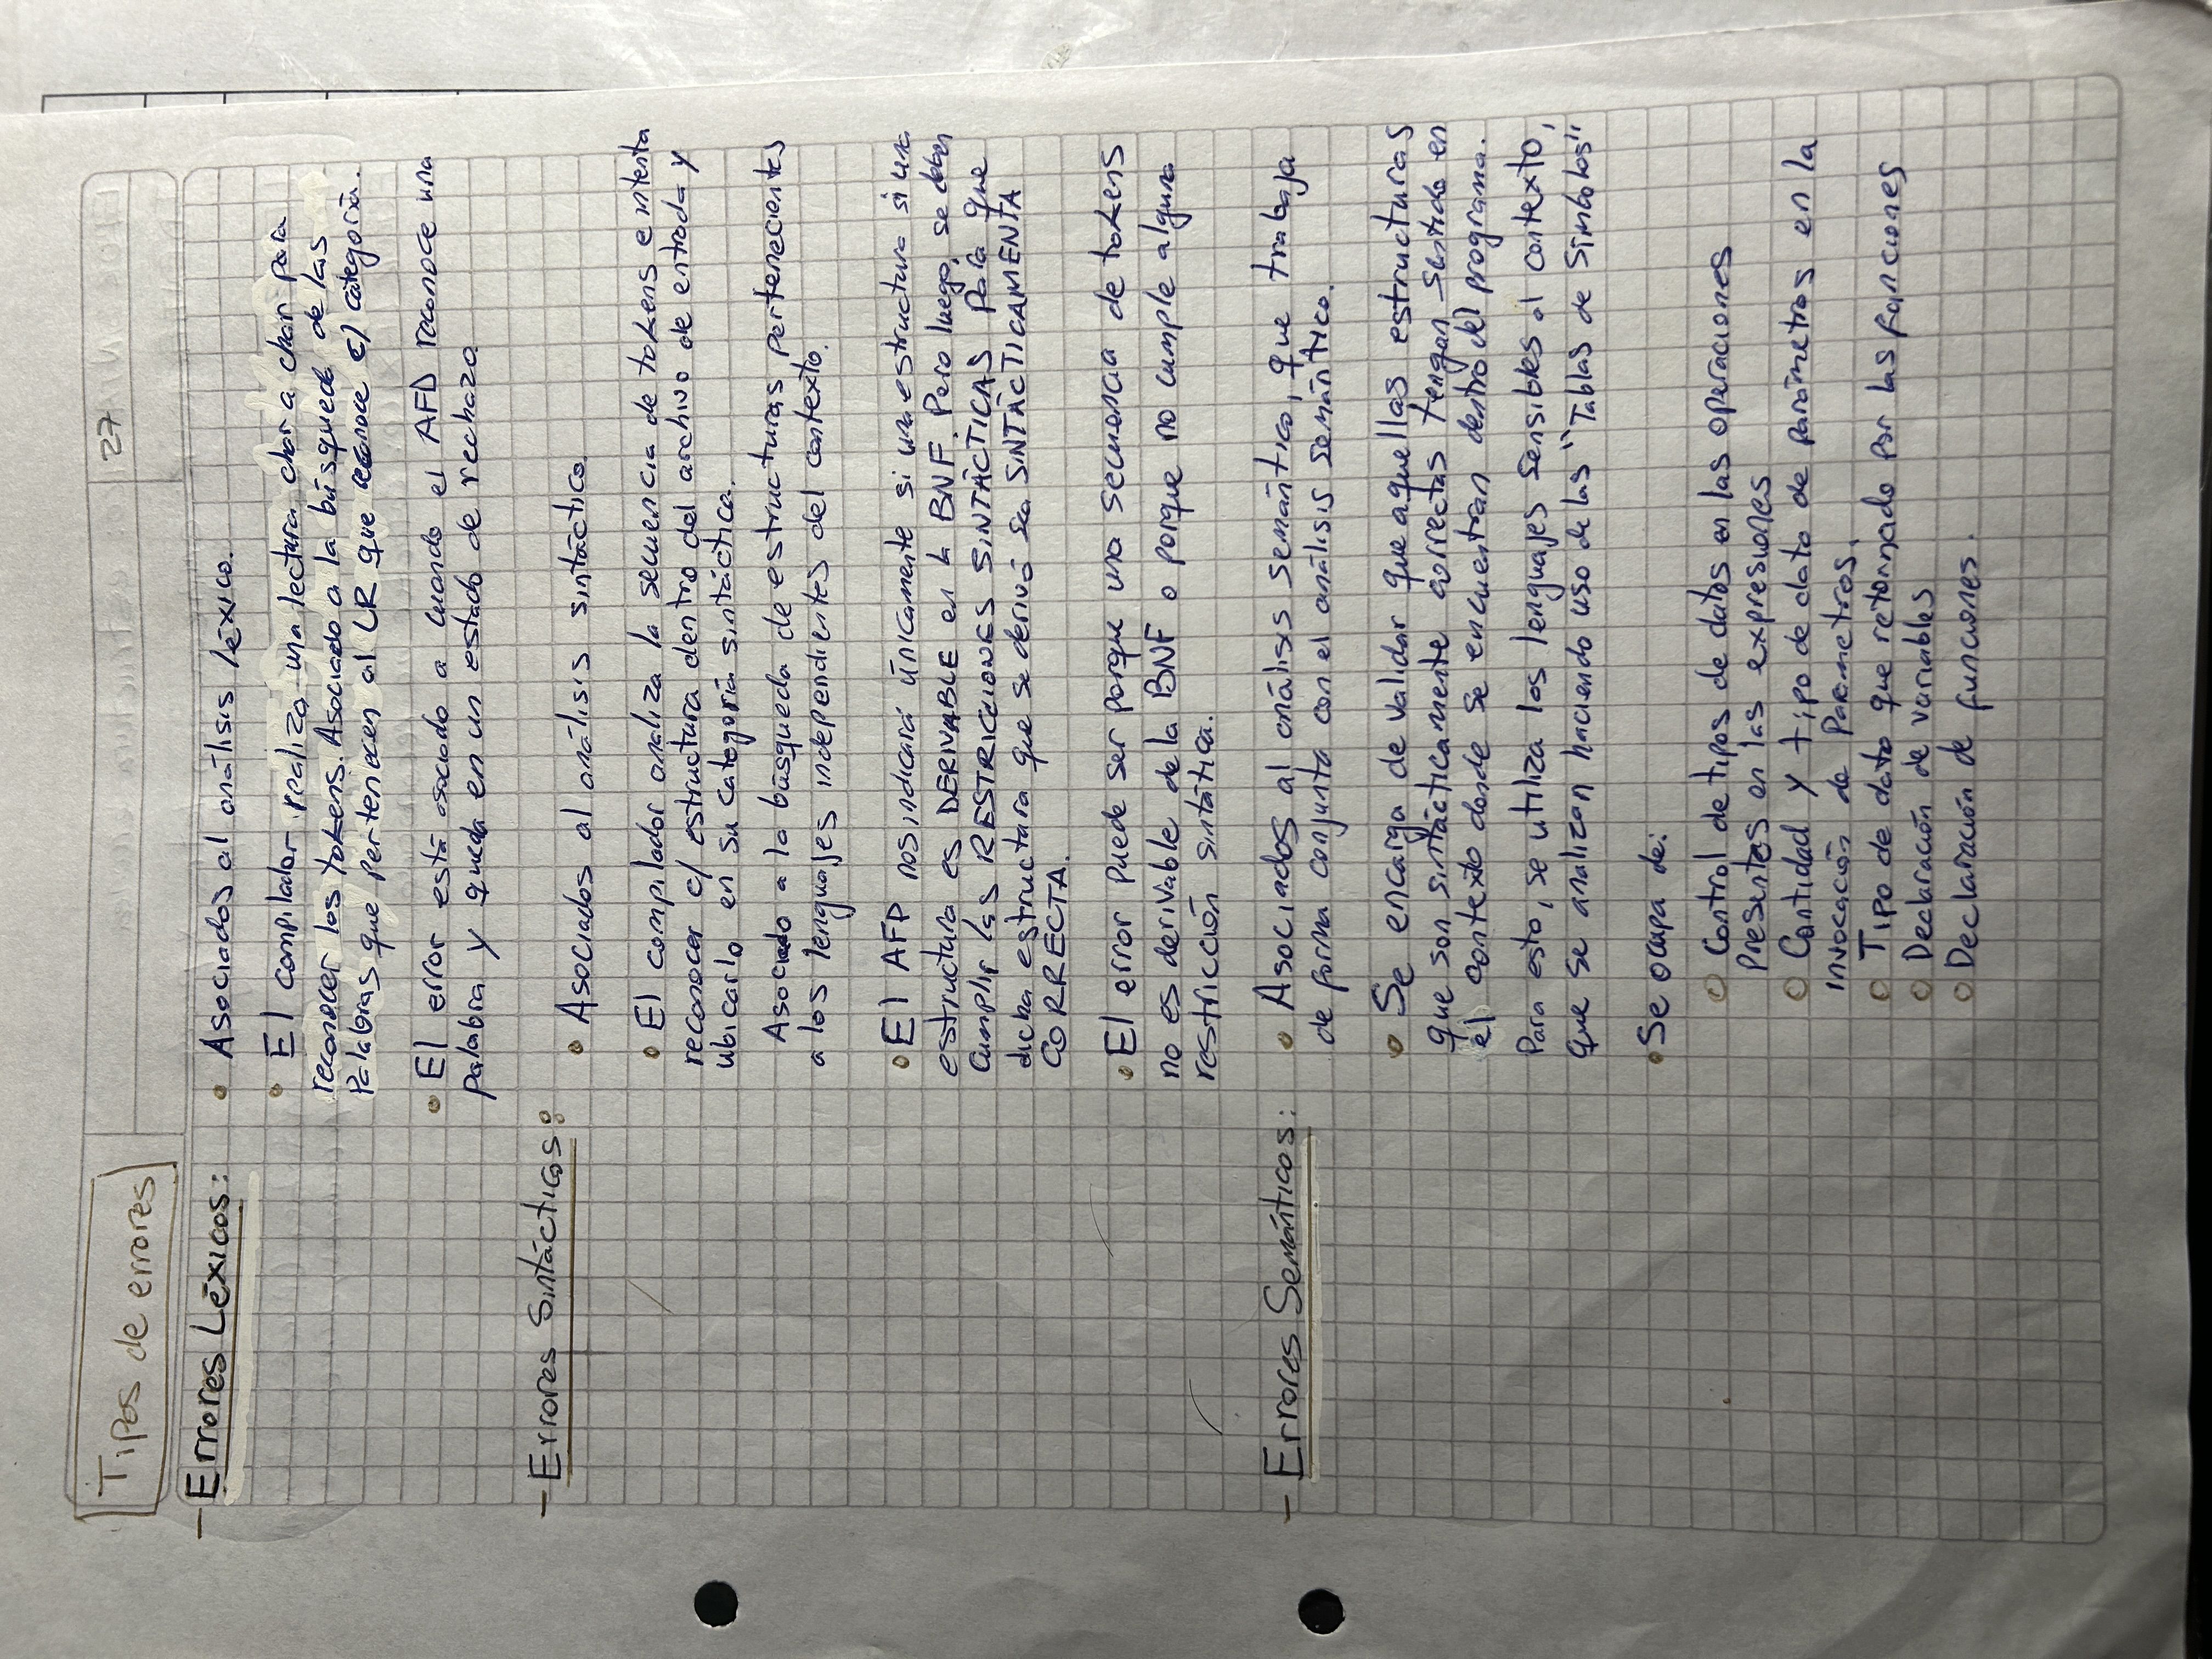 Tipos de errores
27
- Errores Léxicos:
• Asociados al análisis léxico.
• El compilador realiza una lectura char a char para
reconocer los tokens. Asociado a la búsqueda de las
Palabras que pertenecen al LR que reconoce c/ categoría.
• El error está asociado a cuando el AFD reconoce una
palabra y queda en un estado de rechazo.
- Errores Sintácticos:
• Asociados al análisis sintáctico.
• El compilador analiza la secuencia de tokens e intenta
reconocer c/ estructura dentro del archivo de entrada y
ubicarlo en su categoría sintáctica.
Asociado a la búsqueda de estructuras pertenecientes
a los lenguajes independientes del contexto.
• El AFP nos indicará únicamente si una estructura si una
estructura es DERIVABLE en la BNF. Pero luego, se deben
cumplir las RESTRICCIONES SINTÁCTICAS para que
dicha estructura que se derivó sea SINTÁCTICAMENTA
CORRECTA.
• El error puede ser porque una secuencia de tokens
no es derivable de la BNF o porque no cumple alguna
restricción sintática.
- Errores Semánticos:
• Asociados al análisis semántico, que trabaja
de forma conjunta con el análisis semántico.
• Se encarga de validar que aquellas estructuras
que son sintácticamente correctas tengan sentido en
el contexto donde se encuentran dentro del programa.
Para esto, se utiliza los lenguajes sensibles al contexto,
que se analizan haciendo uso de las "Tablas de Símbolos"
• Se ocupa de:
○ Control de tipos de datos en las operaciones
presentes en las expresiones
○ Cantidad y tipo de dato de parámetros en la
invocación de Parametros.
○ Tipo de dato que retornado por las funciones
○ Declaración de variables
○ Declaración de funciones.